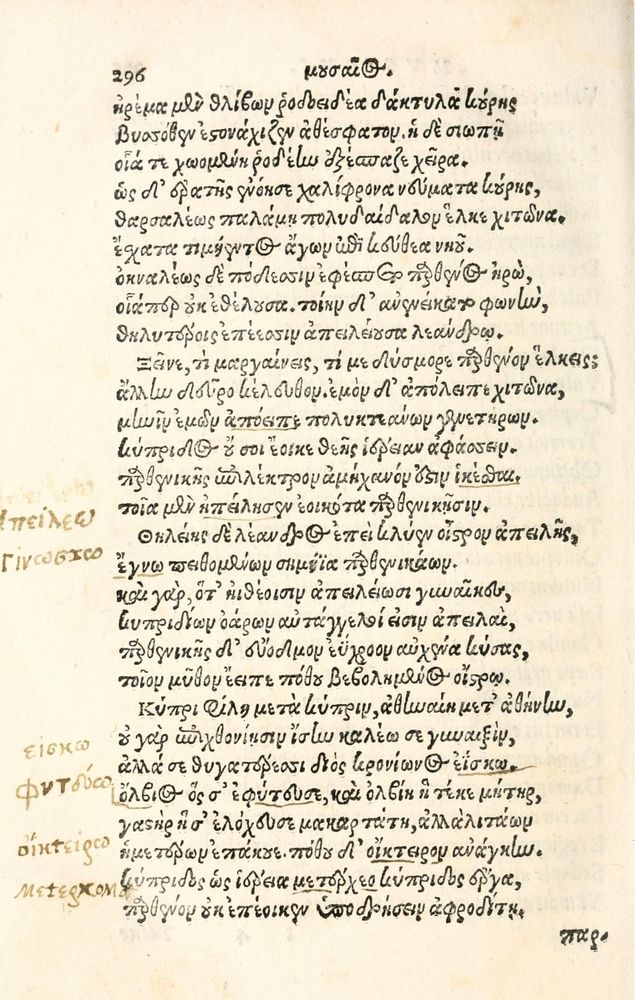 296 μουσαῖος.
ἠρέμα μὲν θλίβων ῥοδοειδέα δάκτυλα κούρης
βυσόθεν ἐστονάχιζεν ἀθέσφατον. ἡ δὲ σιωπῇ
οἷά τε χωομένη ῥοδέην ἐξέσπασε χεῖρα.
ὡς δ' ἐρατῆς ἐνόησε χαλίφρονα νεύματα κούρης,
θαρσαλέως παλάμῃ πολυδαίδαλον ἕλκε χιτῶνα.
ἔσχατα τιμήεντος ἄγων ἐπὶ κεύθεα νηοῦ.
ὀκναλέως δὲ πόδεσσιν ἐφέσπετο παρθένος ἡρὼ,
οἷάπερ οὐκ ἐθέλουσα. τοίην δ' ἀνενείκατο φωνὴν,
θηλυτέροις ἐπέεσσιν ἀπειλείουσα λεάνδρῳ.
Ξεῖνε, τί μαργαίνεις, τί με δύσμορε παρθένον ἕλκεις;
ἄλλην δεῦρο κέλευθον. ἐμὸν δ' ἀπόλειπε χιτῶνα,
μῆνιν ἐμῶν ἀπόειπε πολυκτεάνων γενετήρων.
κύπριδος οὔ σοι ἔοικε θεῆς ἱέρειαν ἀφάσσειν.
παρθενικῆς ἐπὶ λέκτρον ἀμήχανόν ἐστιν ἱκέσθαι.
τοῖα μὲν ἠπείλησεν ἐοικότα παρθενικῇσιν.
ἀπειλέω
Θηλείης δὲ λέανδρος ἐπεὶ κλύεν οἶστρον ἀπειλῆς,
γινώσκω
ἔγνω πειθομένων σημήϊα παρθενικάων.
καὶ γὰρ, ὅτ' ἠϊθέοισιν ἀπειλέωσι γυναῖκες,
κυπριδίων ὀάρων αὐτάγγελοί εἰσιν ἀπειλαὶ,
παρθενικῆς δ' εὔοδμον ἐΰχροον αὐχένα κύσας,
τοῖον μῦθον ἔειπε πόθου βεβολημένος οἴστρῳ.
Κύπρι φίλη μετὰ κύπριν, ἀθηναίη μετ' ἀθήνην,
οὐ γὰρ ἐπιχθονίῃσιν ἴσην καλέω σε γυναιξὶν,
εἰσκω
ἀλλά σε θυγατέρεσσι διὸς κρονίωνος ἐΐσκω.
φυτεύω
ὄλβιος ὅς σ' ἐφύτευσε, καὶ ὀλβίη ἣ τέκε μήτηρ,
γαστὴρ ἥ σ' ἐλόχευσε μακαρτάτη, ἀλλὰ λιτάων
οἰκτείρω
ἡμετέρων ἐπάκουε. πόθου δ' οἴκτειρον ἀνάγκην.
μετερχομαι
κύπριδος ὡς ἱέρεια μετέρχεο κύπριδος ἔργα,
παρθένον οὐκ ἐπέοικεν ὑποδρήσσειν ἀφροδίτῃ.
παρ.